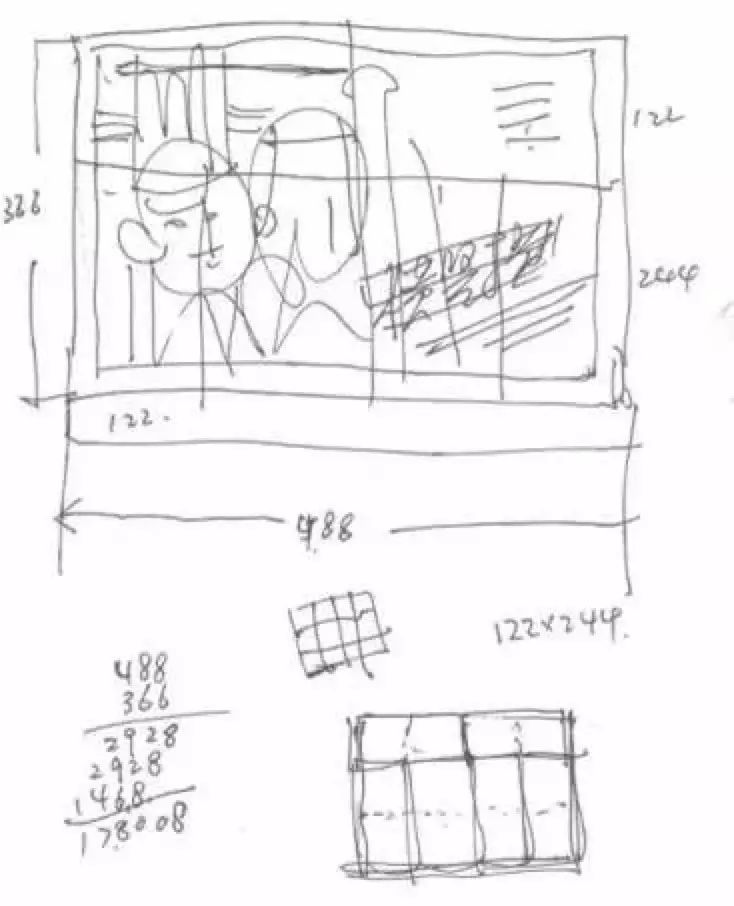 122
366
244
122.
488
122×244.
488
366
2928
2928
1468.
178008